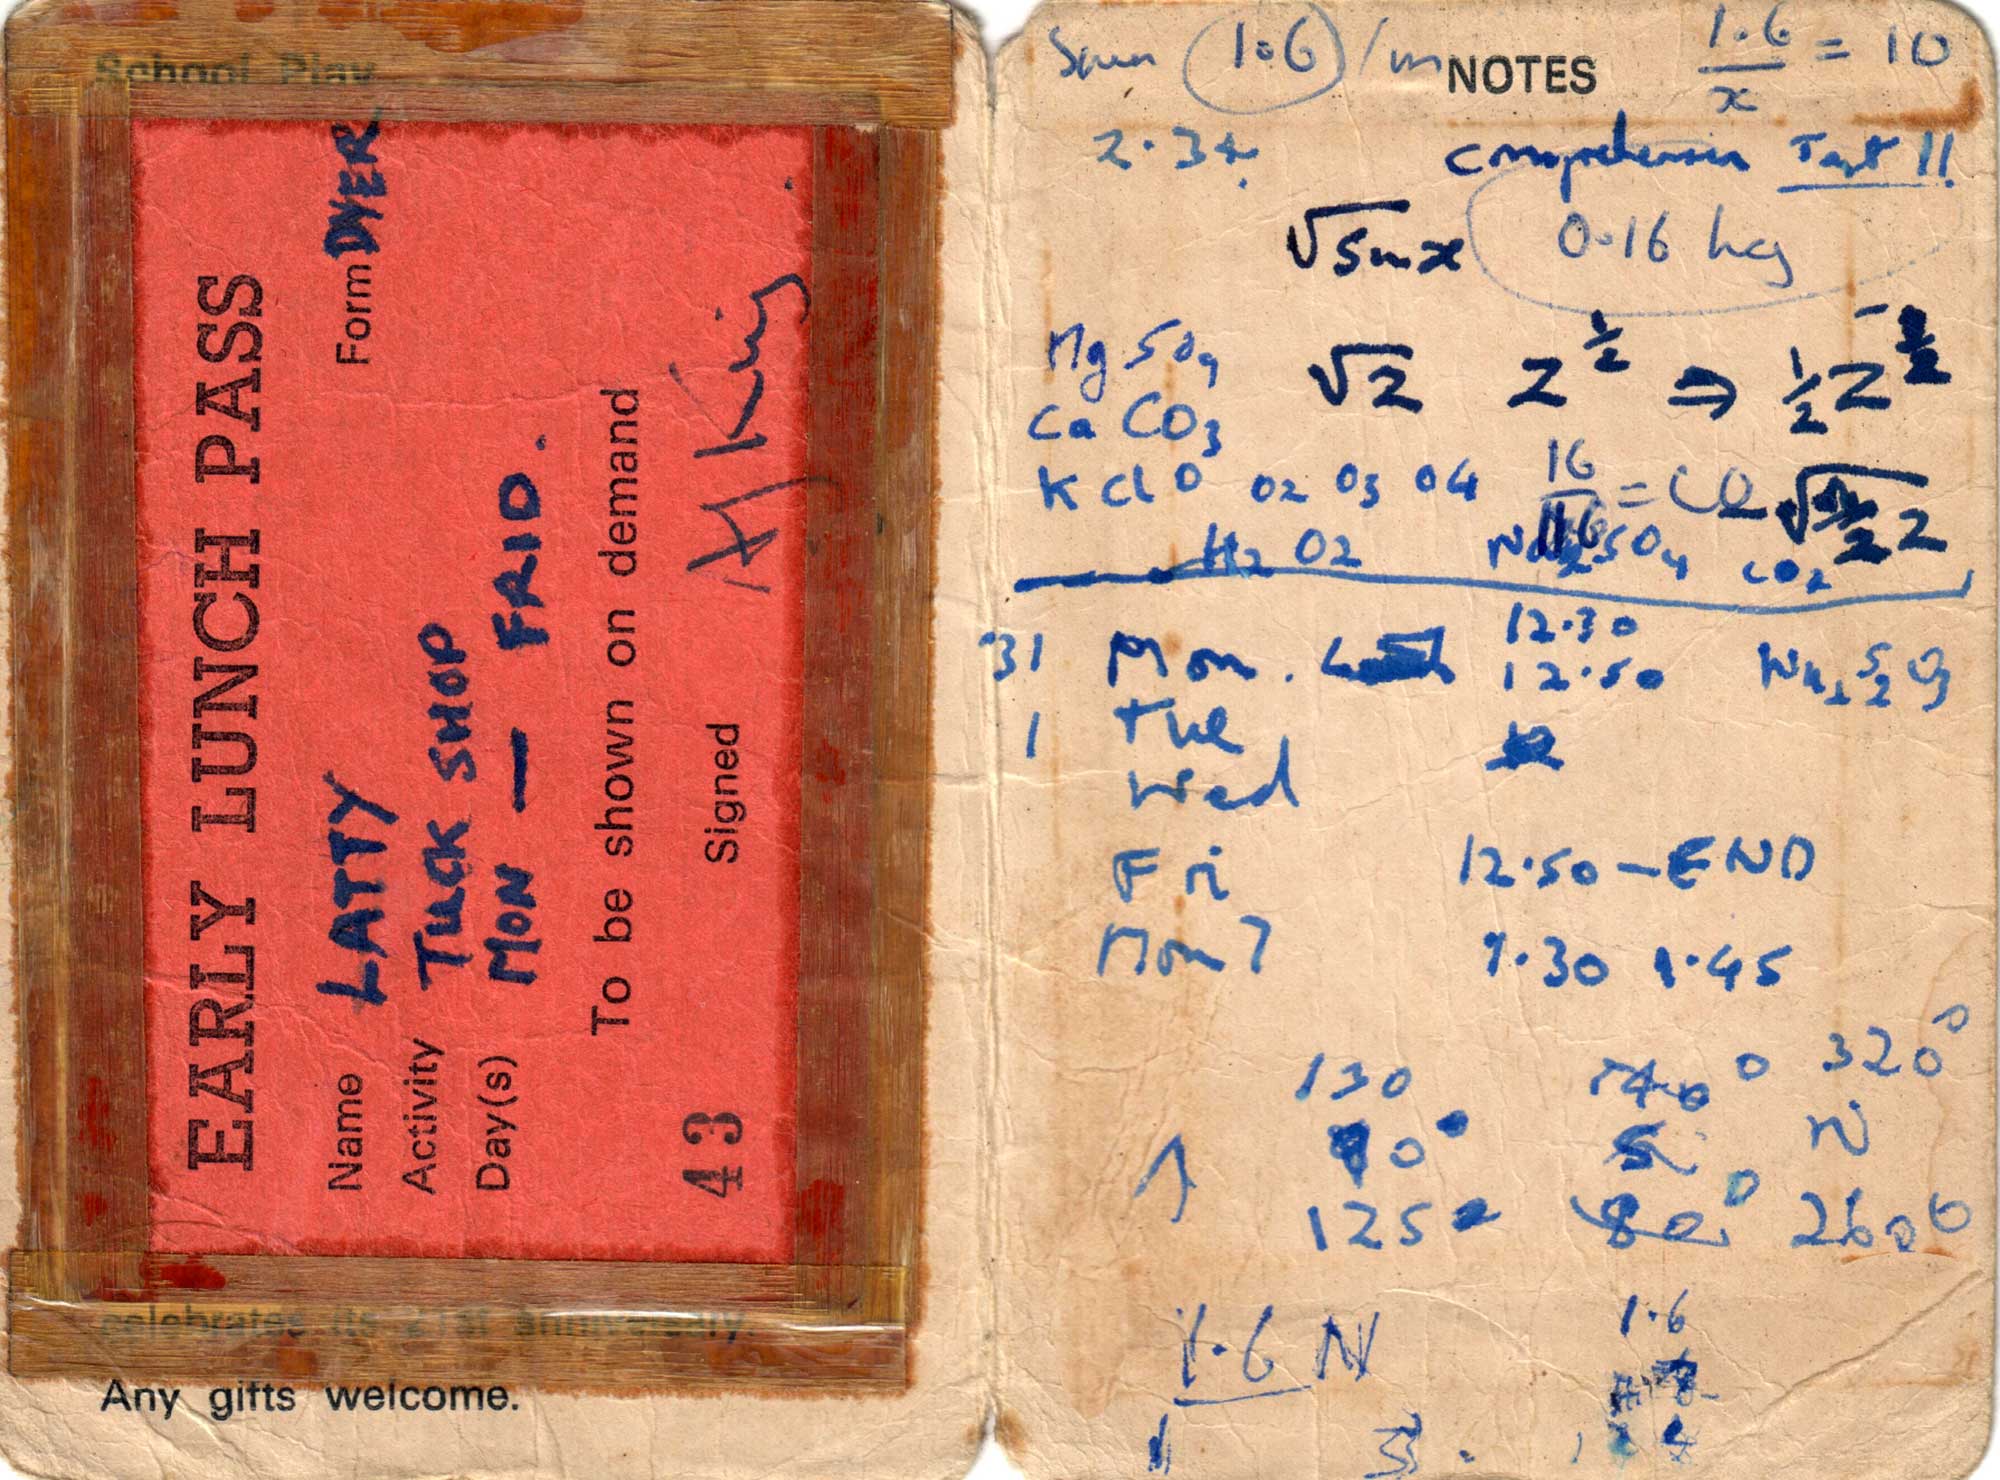 School Play
EARLY LUNCH PASS
Name LATTY Form DYER
Activity TUCK SHOP
Day(s) MON — FRID.
To be shown on demand
43 Signed A King
celebrates its 21st anniversary.
Any gifts welcome.
1.6 /m NOTES 1.6/x = 10
2.34 comprehension Test 11
√sin x 0.16 kg
MgSO4 √z z^½ ⇒ ½z^-½
CaCO3
KClO O2 O3 O4 16
H2O2 Na2SO4 CO2
31 Mon. 12.30
12.50
1 Tue
Wed
Fri 12.50 — END
Mon? 1.30 1.45
130 320°
↑ 90° N
125 80° 260°
1.6 N 1.6